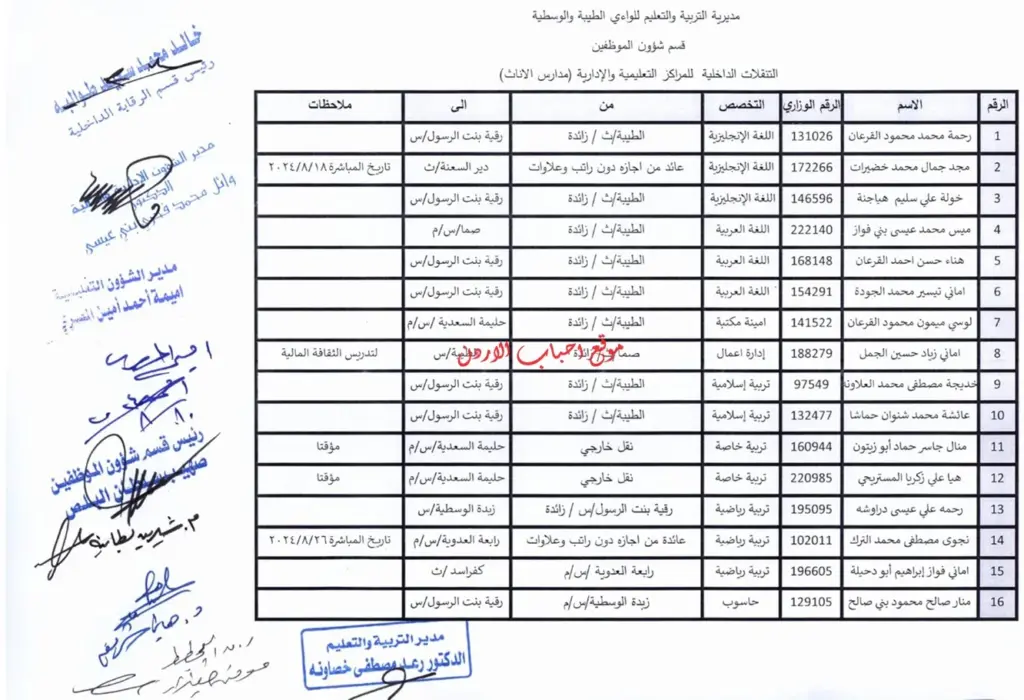 مديرية التربية والتعليم للواءي الطيبة والوسطية
قسم شؤون الموظفين
التنقلات الداخلية للمراكز التعليمية والإدارية (مدارس الاناث)
الرقم الاسم الرقم الوزاري التخصص من الى ملاحظات
1 رحمة محمد محمود القرعان 131026 اللغة الإنجليزية الطيبة/ث / زائدة رقية بنت الرسول/س
2 مجد جمال محمد خضيرات 172266 اللغة الإنجليزية عائد من اجازه دون راتب وعلاوات دير السعنة/ث تاريخ المباشرة ٢٠٢٤/٨/١٨
3 خولة علي سليم هباجنة 146596 اللغة الإنجليزية الطيبة/ث / زائدة رقية بنت الرسول/س
4 ميس محمد عيسى بني فواز 222140 اللغة العربية الطيبة/ث / زائدة صما/س/م
5 هناء حسن احمد القرعان 168148 اللغة العربية الطيبة/ث / زائدة رقية بنت الرسول/س
6 اماني تيسير محمد الجودة 154291 اللغة العربية الطيبة/ث / زائدة رقية بنت الرسول/س
7 لوسي ميمون محمود القرعان 141522 امينة مكتبة الطيبة/ث / زائدة حليمة السعدية /س/م
8 اماني زياد حسين الجمل 188279 إدارة اعمال صما/س/زائدة الطيبة/س لتدريس الثقافة المالية
موقع احباب الاردن
9 خديجة مصطفى محمد العلاونه 97549 تربية إسلامية الطيبة/ث / زائدة رقية بنت الرسول/س
10 عائشة محمد شنوان حماشا 132477 تربية إسلامية الطيبة/ث / زائدة رقية بنت الرسول/س
11 منال جاسر حماد أبو زيتون 160944 تربية خاصة نقل خارجي حليمة السعدية/س/م مؤقتا
12 هيا علي زكريا المستريحي 220985 تربية خاصة نقل خارجي حليمة السعدية/س/م مؤقتا
13 رحمه علي عيسى دراوشه 195095 تربية رياضية رقية بنت الرسول/س / زائدة زبدة الوسطية/س
14 نجوى مصطفى محمد الترك 102011 تربية رياضية عائدة من اجازه دون راتب وعلاوات رابعة العدوية/س/م تاريخ المباشرة ٢٠٢٤/٨/٢٦
15 اماني فواز إبراهيم أبو دحيلة 196605 تربية رياضية رابعة العدوية /س/م كفراسد /ث
16 منار صالح محمود بني صالح 129105 حاسوب زبدة الوسطية/س/م رقية بنت الرسول/س
خالد محمد سعيد طوالبه
رئيس قسم الرقابة الداخلية
مدير الشؤون الإدارية
الدكتور
وائل محمد بني عيسى
مدير الشؤون التعليمية
اميمة أحمد أمين
رئيس قسم شؤون الموظفين
مدير التربية والتعليم
الدكتور رعد مصطفى خصاونه